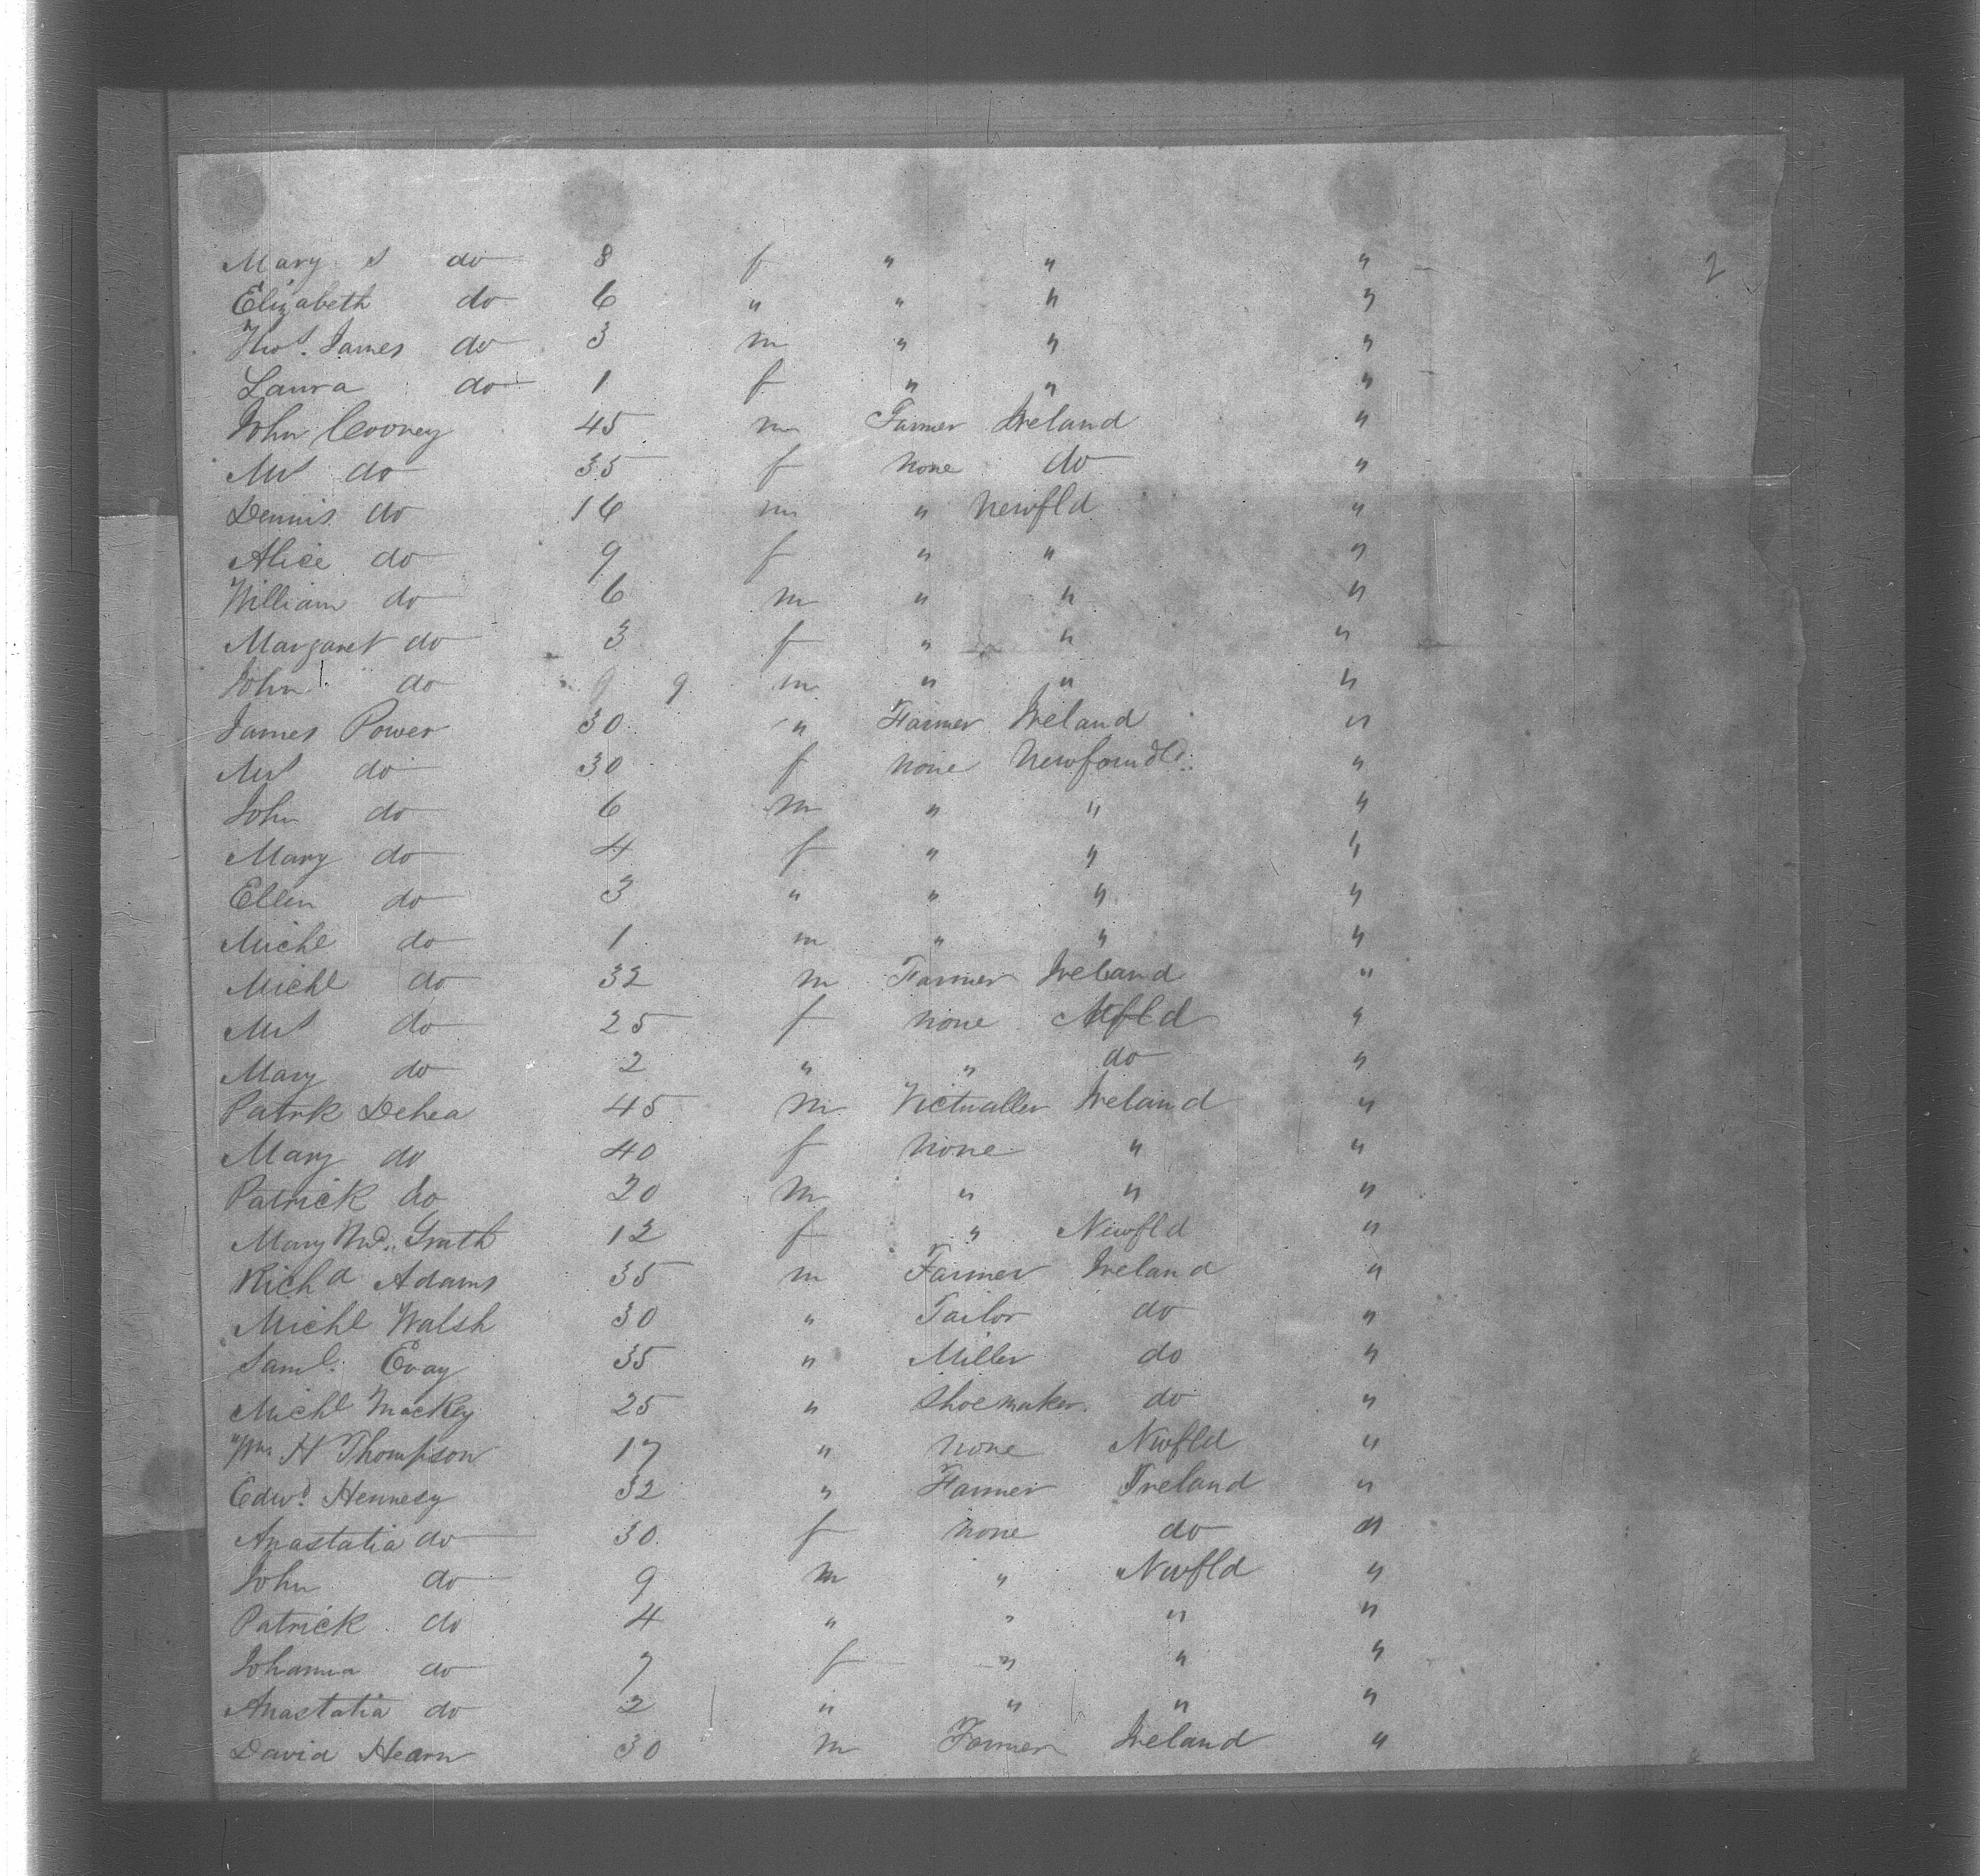 Mary S do 8 f " " " 2
Elizabeth do 6 " " " "
Thos. James do 3 m " " "
Laura do 1 f " " "
John Cooney 45 m Farmer Ireland "
Mrs do 35 f none do "
Dennis do 16 m " Newfld "
Alice do 9 f " " "
William do 6 m " " "
Margaret do 3 f " " "
John do 9 m " " "
James Power 30 " Farmer Ireland "
Mrs do 30 f none Newfoundld. "
John do 6 m " " "
Mary do 4 f " " "
Ellen do 3 " " " "
Michl do 1 m " " "
Michl do 32 m Farmer Ireland "
Mrs do 25 f none Nfld "
Mary do 2 " " do "
Patrk Dehea 45 m Victualler Ireland "
Mary do 40 f none " "
Patrick do 20 m " " "
Mary Mc. Grath 12 f " Newfld "
Richd Adams 35 m Farmer Ireland "
Michl Walsh 30 " Tailor do "
Saml. Evay 35 " Miller do "
Michl Mackey 25 " Shoemaker do "
Wm H Thompson 17 " none Nwfld "
Edwd. Hennesy 32 " Farmer Ireland "
Anastatia do 30 f none do "
John do 9 m " Nwfld "
Patrick do 4 " " " "
Johanna do 7 f " " "
Anastatia do 2 " " " "
David Hearn 30 m Farmer Ireland "